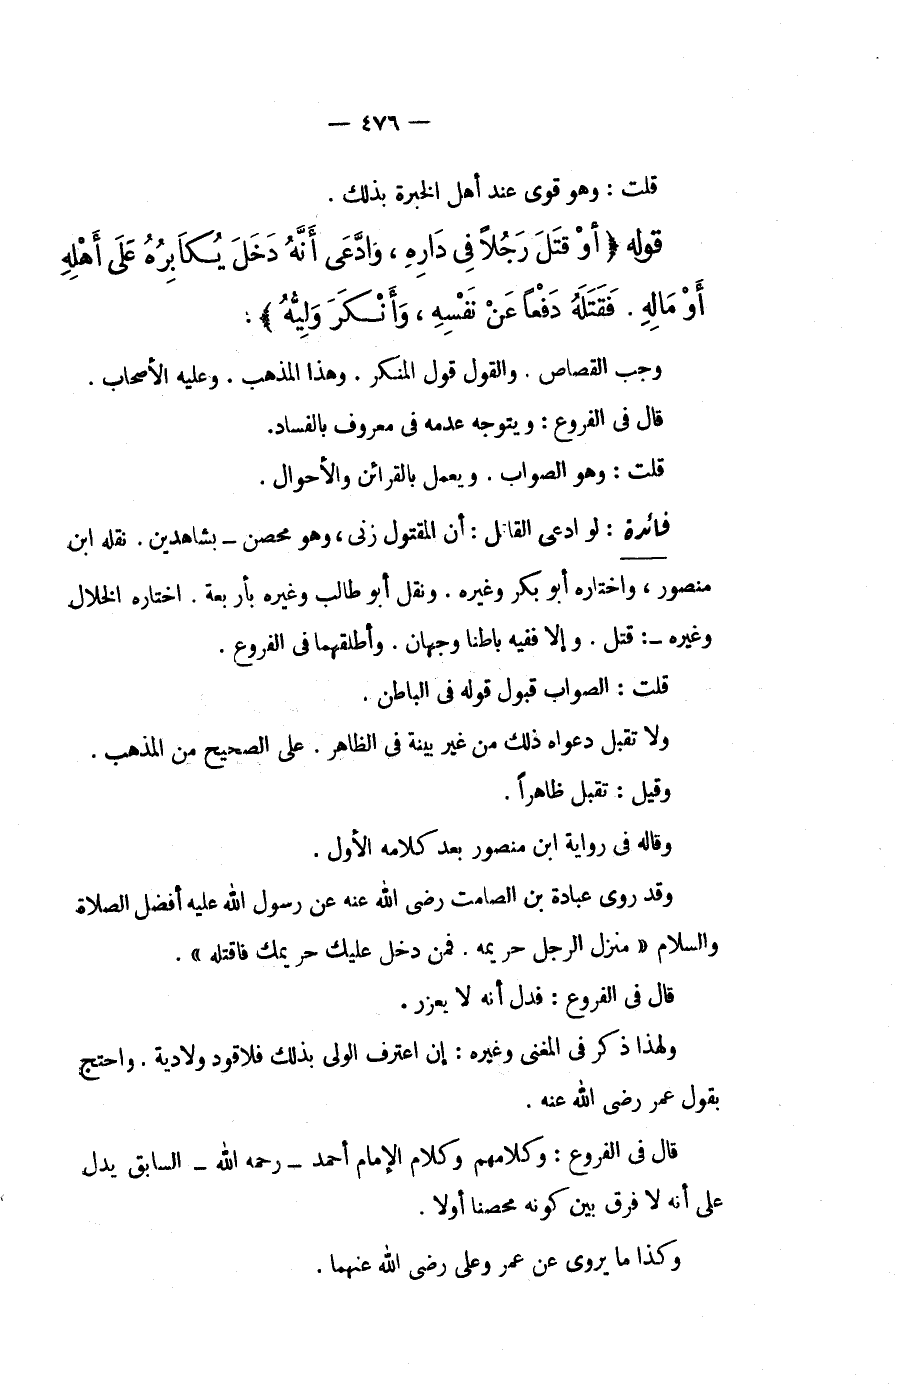 — ٤٧٦ —
قلت : وهو قوى عند أهل الخبرة بذلك .
قوله ﴿ أَوْ قَتَلَ رَجُلاً فِى دَارِهِ ، وَادَّعَى أَنَّهُ دَخَلَ يُكَابِرُهُ عَلَى أَهْلِهِ
أَوْ مَالِهِ . فَقَتَلَهُ دَفْعاً عَنْ نَفْسِهِ ، وَأَنْكَرَ وَلِيُّهُ ﴾ :
وجب القصاص . والقول قول المنكر . وهذا المذهب . وعليه الأصحاب .
قال فى الفروع : ويتوجه عدمه فى معروف بالفساد.
قلت : وهو الصواب . ويعمل بالقرائن والأحوال .
فائدة : لو ادعى القاتل : أن المقتول زنى ، وهو محصن ــ بشاهدين . نقله ابن
منصور ، واختاره أبو بكر وغيره . ونقل أبو طالب وغيره بأربعة . اختاره الخلال
وغيره ــ : قتل . وإلا ففيه باطنا وجهان . وأطلقهما فى الفروع .
قلت : الصواب قبول قوله فى الباطن .
ولا تقبل دعواه ذلك من غير بينة فى الظاهر . على الصحيح من المذهب .
وقيل : تقبل ظاهراً .
وقاله فى رواية ابن منصور بعد كلامه الأول .
وقد روى عبادة بن الصامت رضى الله عنه عن رسول الله عليه أفضل الصلاة
والسلام « منزل الرجل حريمه . فمن دخل عليك حريمك فاقتله » .
قال فى الفروع : فدل أنه لا يعزر .
ولهذا ذكر فى المغنى وغيره : إن اعترف الولى بذلك فلاقود ولادية . واحتج
بقول عمر رضى الله عنه .
قال فى الفروع : وكلامهم وكلام الإمام أحمد ــ رحمه الله ــ السابق يدل
على أنه لا فرق بين كونه محصنا أولا .
وكذا ما يروى عن عمر وعلى رضى الله عنهما .